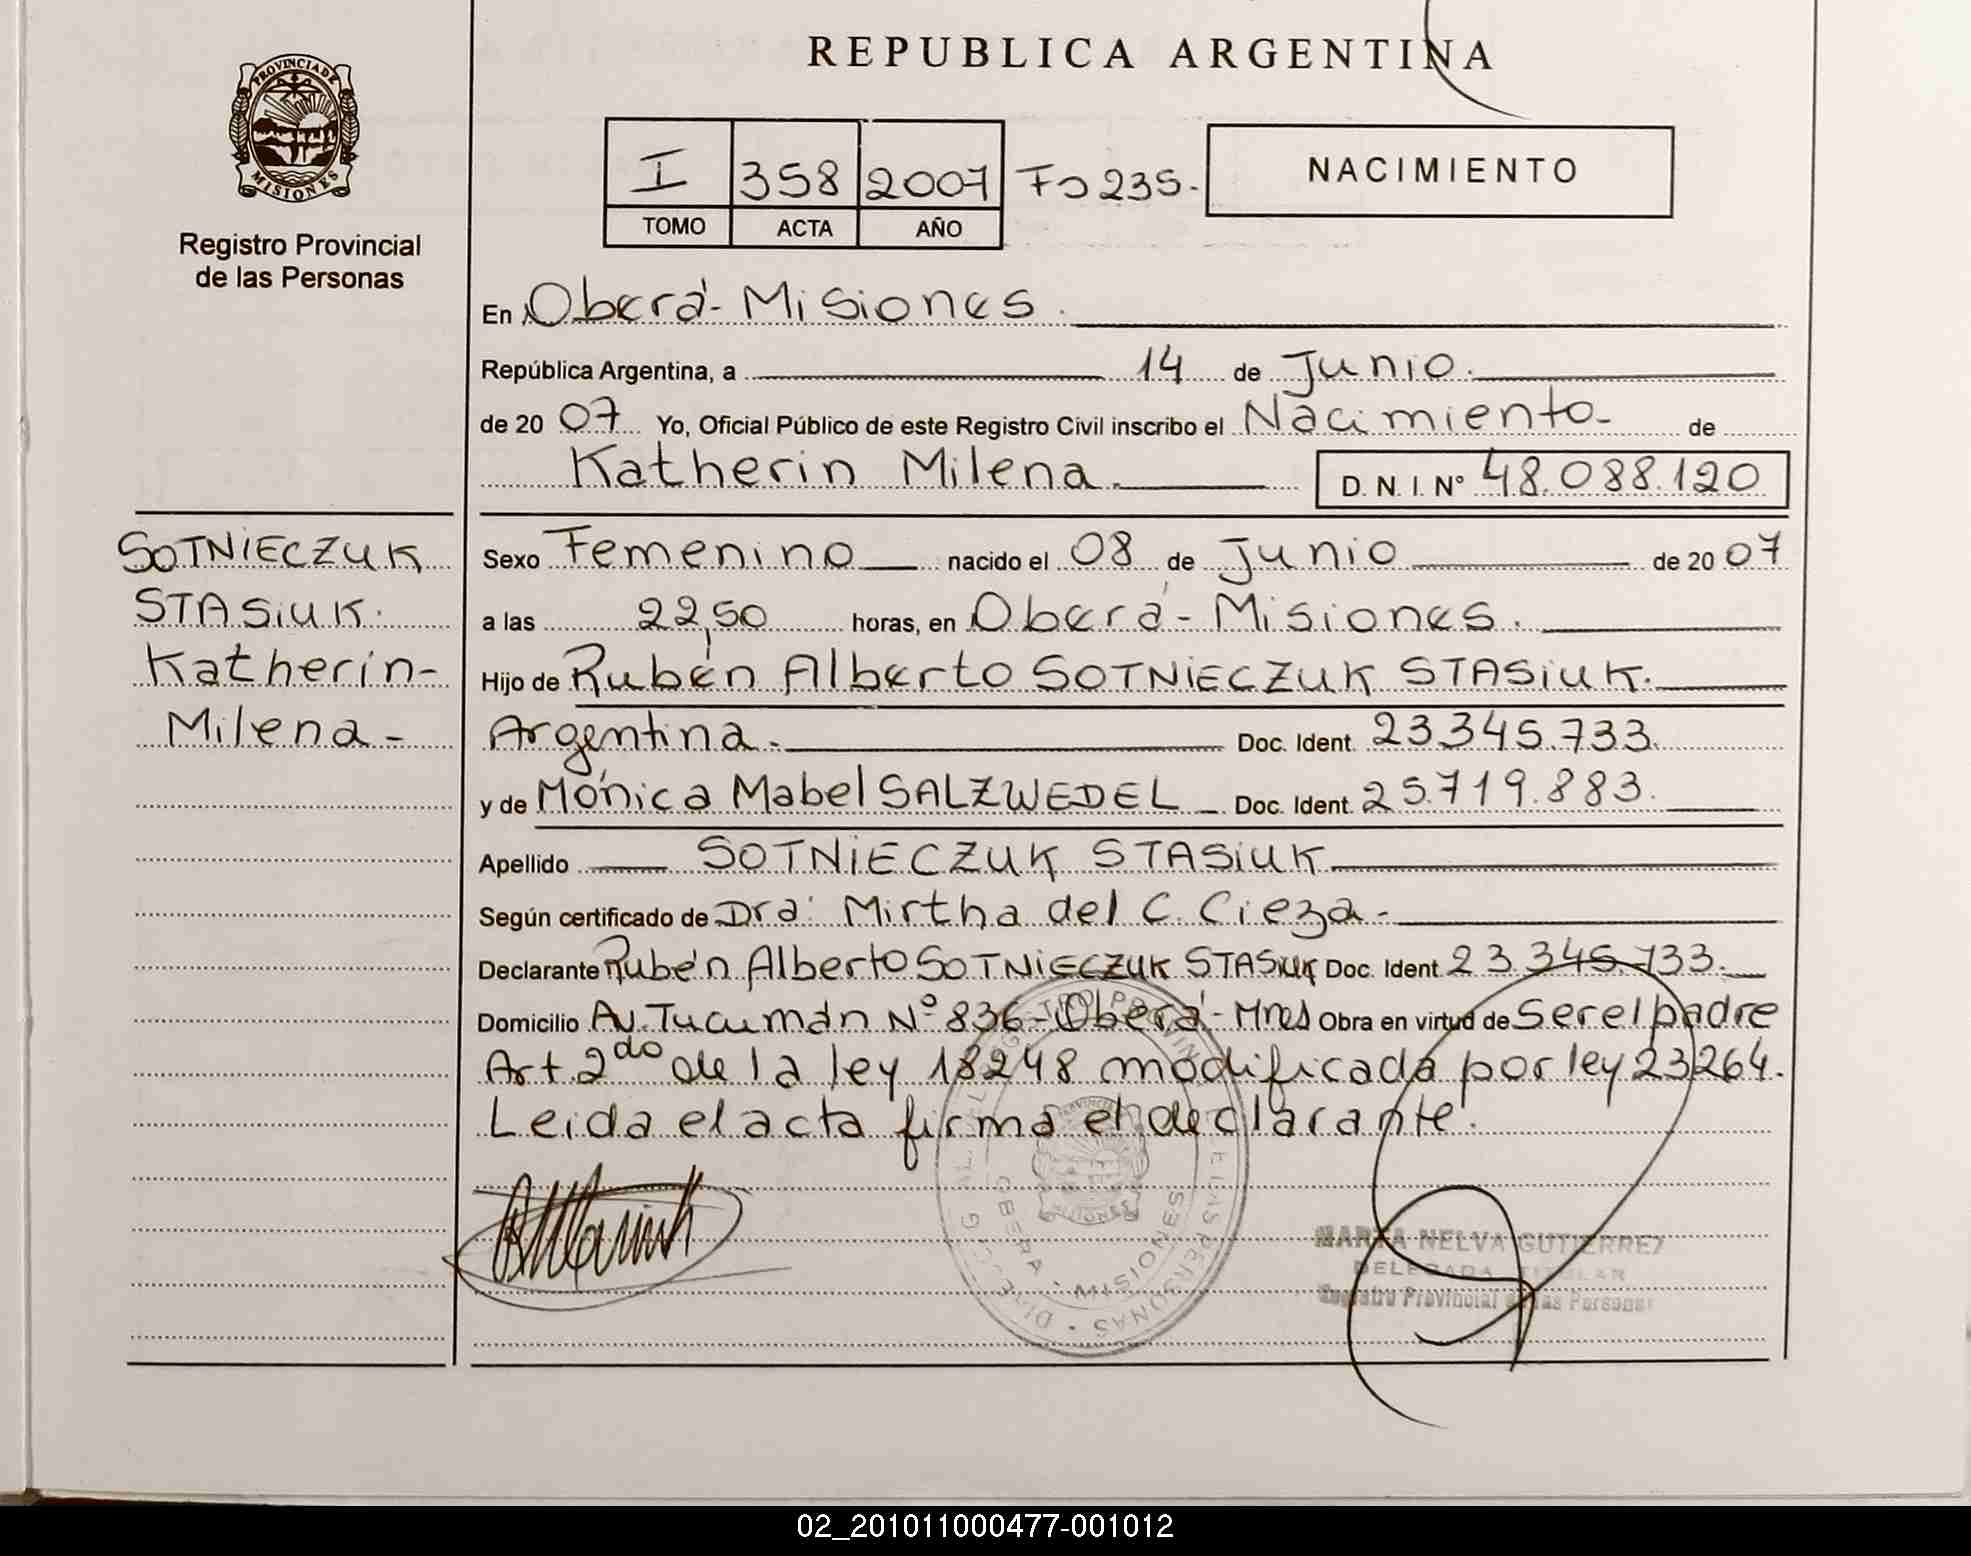 REPUBLICA ARGENTINA
PROVINCIA DE MISIONES
Registro Provincial
de las Personas
I 358 2007 Fo 235.
TOMO ACTA AÑO
NACIMIENTO
En Oberá - Misiones.
República Argentina, a 14 de Junio.
de 20 07 Yo, Oficial Público de este Registro Civil inscribo el Nacimiento- de
Katherin Milena. D. N. I. N° 48.088.120
SOTNiECZUK
STASiUK.
Katherin-
Milena-
Sexo Femenino nacido el 08 de Junio de 20 07
a las 22,50 horas, en Oberá - Misiones.
Hijo de Rubén Alberto SOTNiECZUK STASiUK.
Argentina. Doc. Ident. 23.345.733.
y de Mónica Mabel SALZWEDEL Doc. Ident. 25.719.883.
Apellido SOTNiECZUK STASiUK
Según certificado de Dra. Mirtha del C. Cieza-
Declarante Rubén Alberto SOTNiECZUK STASiUK Doc. Ident. 23.345.733.
Domicilio Av. Tucumán N° 836 - Oberá - Mnes Obra en virtud de Ser el padre
Art. 2do de la ley 18248 modificada por ley 23264.
Leida el acta firma el declarante.
OBERA - MISIONES
MARTA NELVA GUTIERREZ
DELEGADA TITULAR
Registro Provincial de las Personas
02_201011000477-001012